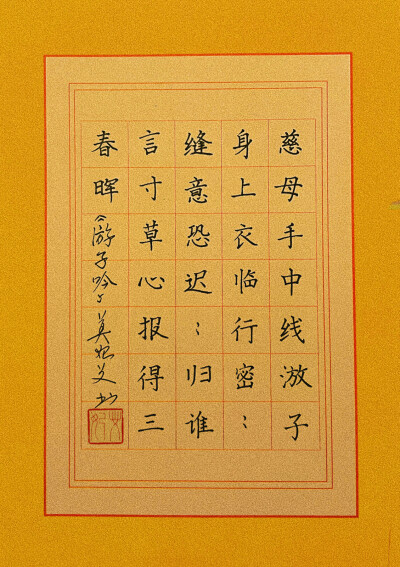 慈母手中线游子
身上衣临行密〻
缝意恐迟〻归谁
言寸草心报得三
春晖《游子吟》